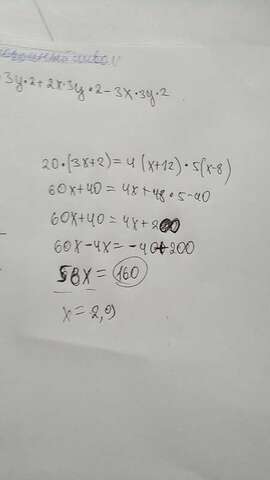 3y·2+2x·3y·2-3x·3y·2
20·(3x+2)=4(x+12)·5(x-8)
60x+40=4x+48·5-40
60x+40=4x+200
60x-4x=-40+200
58x=160
x=2,9